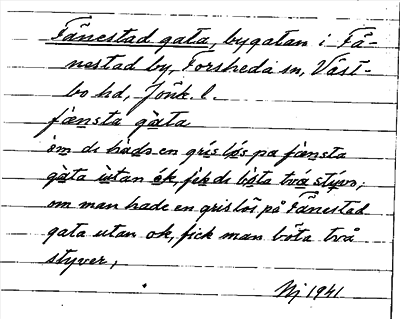 Fänestad gata, bygatan i Fä-
nestad by, Forsheda sn, Väst-
bo hd, Jönk. l.
fànsta gàta
òm di hàdo en gris lós pa fànsta
gàta ùtan ók, fek di bòta två stývo;
om man hade en gris lös på Fänestad
gata utan ok, fick man böta två
styver,
Nj 1941